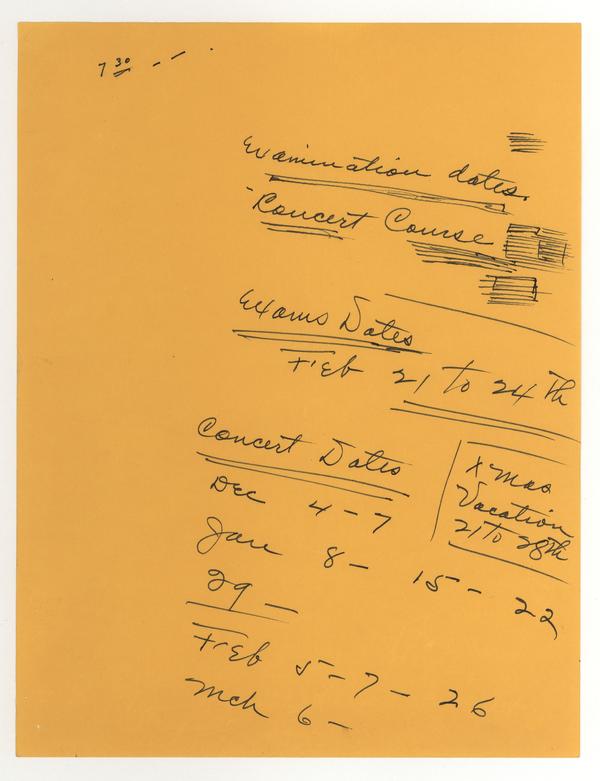 7 30
Examination dates.
Concert Course
Exams Dates
Feb 21 to 24 th
Concert Dates
Dec 4 - 7
X-mas
Vacation
21 to 28th
Jan 8 - 15 - 22
29 -
Feb 5 - 7 - 26
Mch 6 -